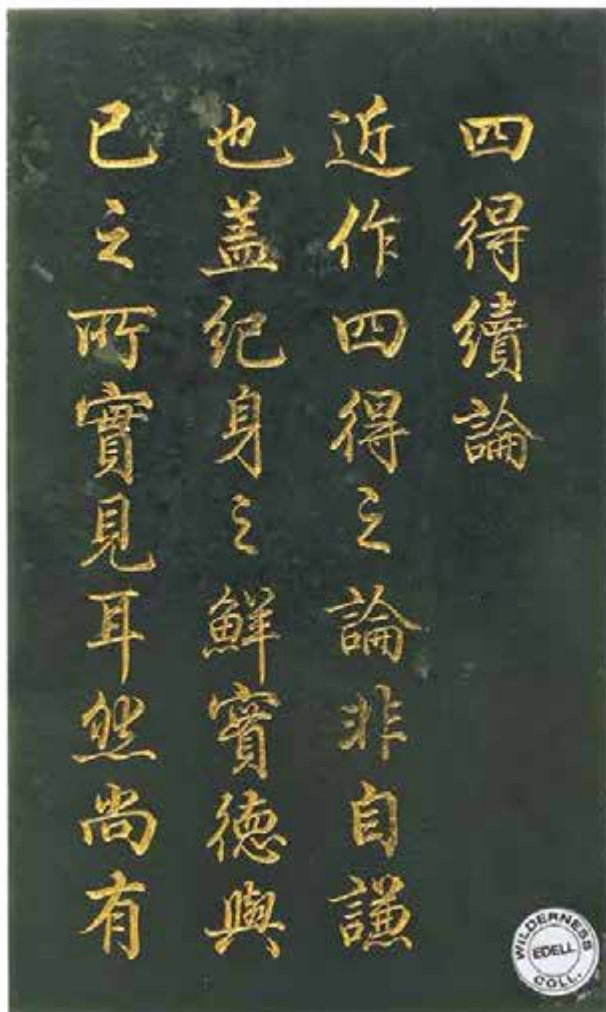 四得續論
近作四得之論非自謙
也盖紀身之鮮實德與
已之所實見耳然尚有
WILDERNESS
EDELL
COLL.